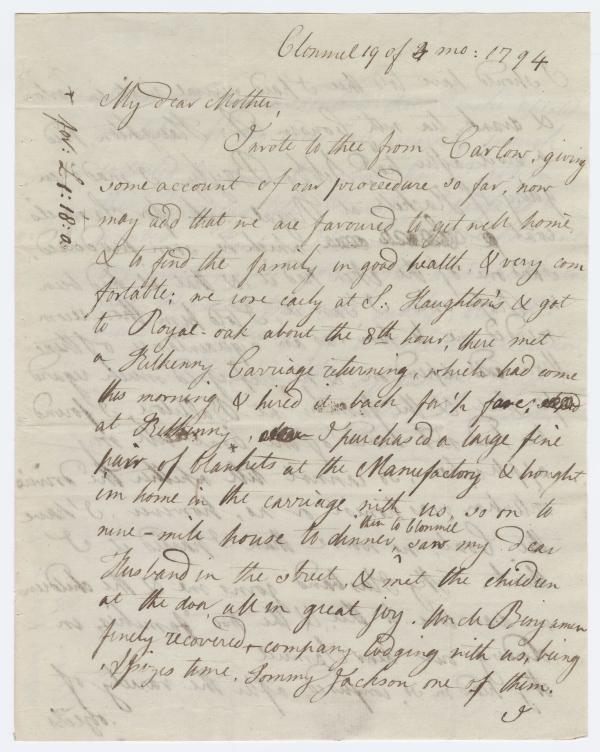 Clonmel 19 of 4 mo: 1794
My dear Mother,
I wrote to thee from Carlow, giving
some account of our procedure so far, now
may add that we are favoured to get well home
& to find the family in good health, & very com
fortable; we rose early at S: Haughton's & got
to Royal-oak about the 8th hour, there met
a Kilkenny Carriage returning, which had come
this morning & hired it back for ½ fare;
at Kilkenny, I purchased a large fine
pair of blankets at the Manufactory & brought
'em home in the carriage with us, so on to
nine-mile house to dinner, then to Clonmel
saw my dear
Husband in the street, & met the children
at the door all in great joy. Uncle Benjamin
finely recovered & company lodging with us, being
time. Tommy Jackson one of them.
I
+ for: £1:18:0